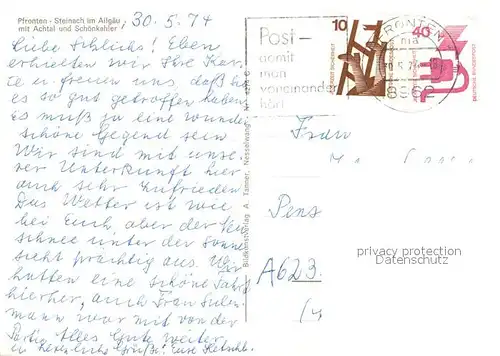 Pfronten - Steinach im Allgäu
mit Achtal und Schönkahler
, 30. 5. 74
Liebe Schlichs! Eben
erhielten wir Ihre Kar-
te u. freuen uns daß Ihr
es so gut getroffen haben.
Es muß ja eine wunder
schöne Gegend sein
Wir sind mit unse-
rer Unterkunft hier
auch sehr zufrieden
Das Wetter ist wie
bei Euch, aber der Neu
schnee unter der Sonne
sieht prächtig aus. Wir
hatten eine schöne Fahrt
hierher, auch Frau
mann war mit von der
Partie. Alles Gute weiter
u. herzliche Grüße! Eure
Bildkunstverlag A. Tanner, Nesselwang
Post-
damit
man
voneinander
hört
PFRONTEN
30.5.74
8962
10
40
DEUTSCHE BUNDESPOST
Frau
Pens
A623
privacy protection
Datenschutz